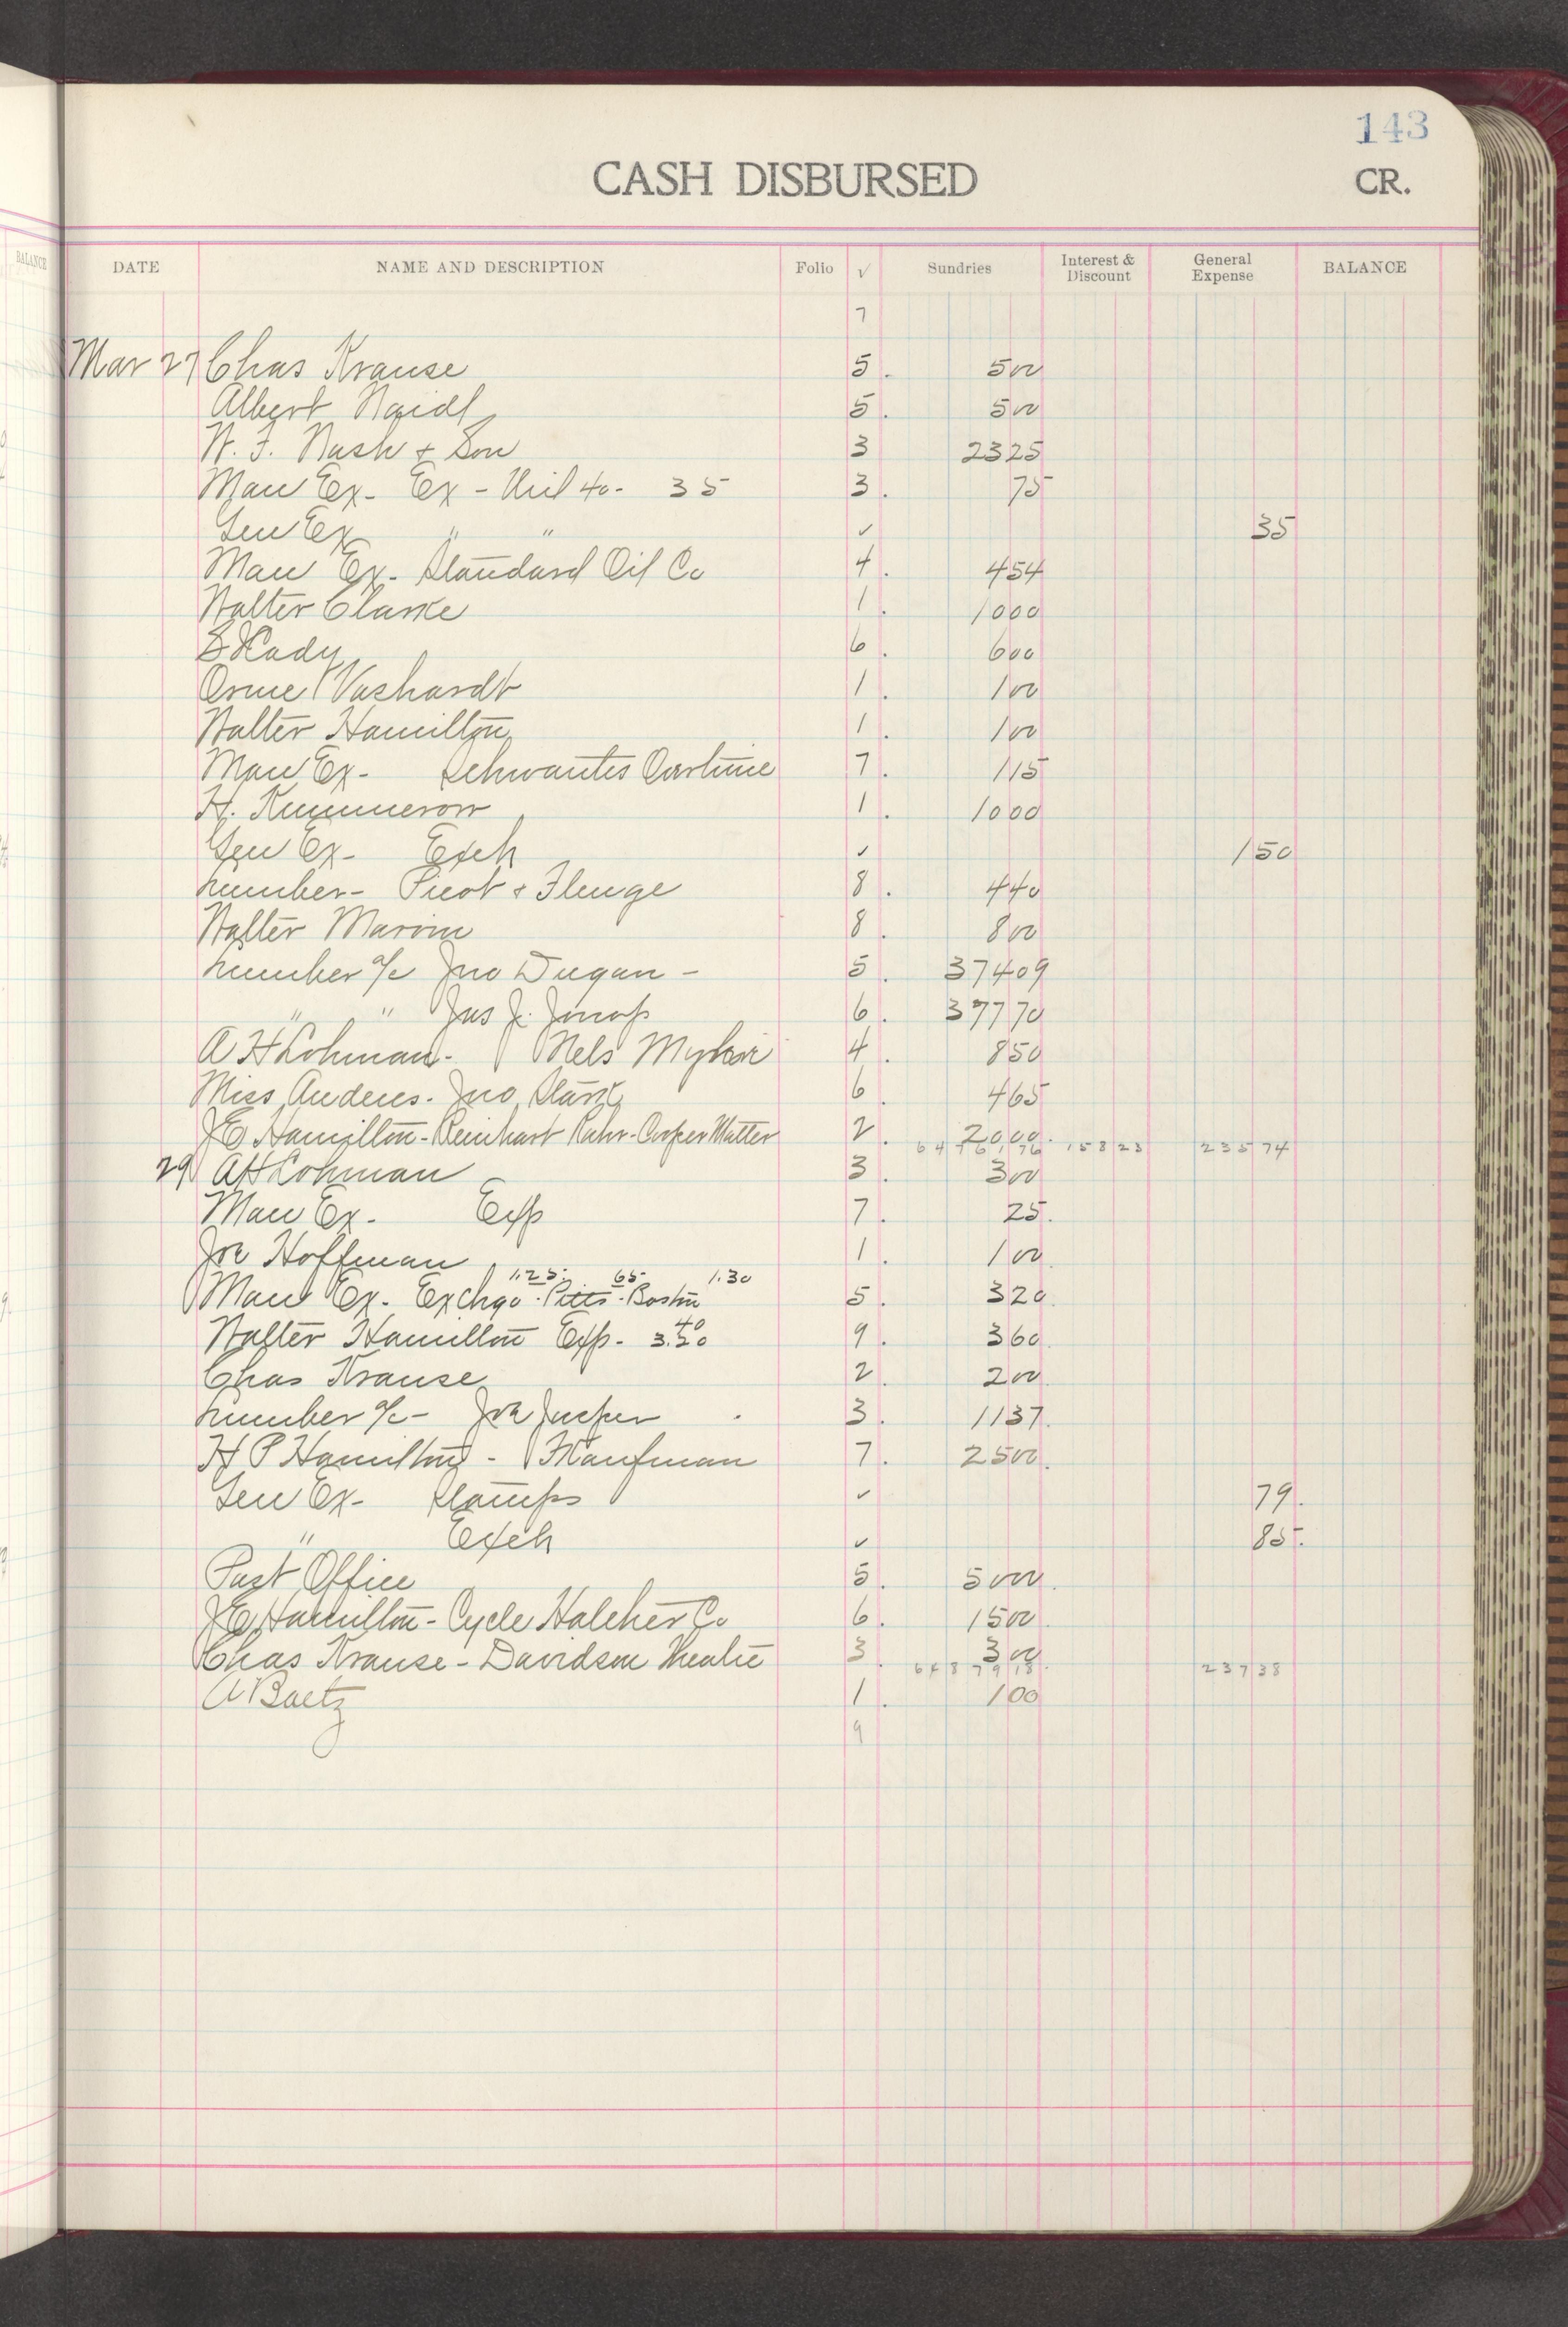 143
CASH DISBURSED CR.
BALANCE
DATE NAME AND DESCRIPTION Folio √ Sundries Interest & Discount General Expense BALANCE
7
Mar 27 Chas Krause 5 . 500
Albert Naidl 5 . 500
W. F. Nash & Son 3 2325
Man Ex - Ex - Mil 40 - 35 3 . 75
Gen Ex " " ✓ 35
Man Ex - Standard Oil Co 4 . 454
Walter Clarke 1 . 1000
Cady 6 . 600
Orme Vashardt 1 . 100
Walter Hamilton 1 . 100
Man Ex - Schwantes Overtime 7 . 115
H. Kummerow 1 . 1000
Gen Ex - Exch ✓ 150
Lumber - Picot & Flenge 8 . 440
Walter Marvin 8 . 800
Lumber a/c Jno Dugan - 5 . 37409
" " Jas J. 6 . 37770
A H Lohman - Nels 4 . 850
Miss Anderes - Jno Stark 6 . 465
J E Hamilton - Reinhart Rahr - Cooper Matter 2 . 2000.
6476176 15823 23574
29 A H Lohman 3 . 300
Man Ex - Exp 7 . 25.
Joe Hoffman 1 . 100
1.25 65 1.30
Man Ex - Exchgo - Pitts - Boston 5 . 320
Walter Hamilton Exp - 3.20 40 9 . 360
Chas Krause 2 . 200
Lumber a/c - Joe 3 . 1137.
H P Hamilton - Kaufman 7 . 2500.
Gen Ex - Stamps ✓ 79.
" Exch ✓ 85.
Post Office 5 . 5000.
J E Hamilton - Cycle Hatcher Co 6 . 1500
Chas Krause - Davidson Theatre 3 . 300.
6487918 23738
A Baetz 1 . 100
9